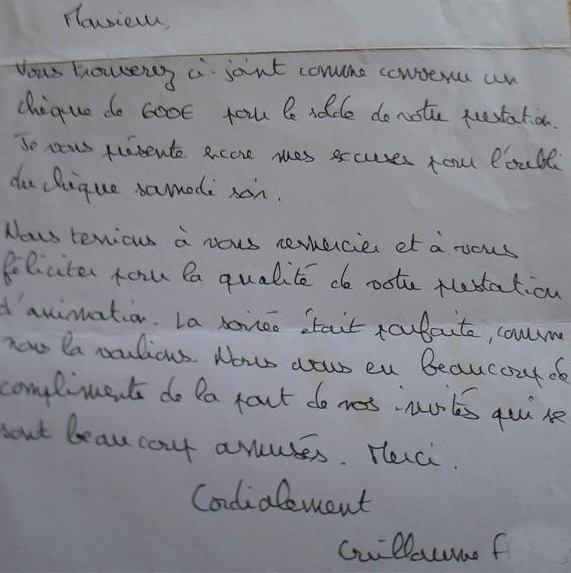 Monsieur,
Vous trouverez ci-joint comme convenu un
chèque de 600€ pour le solde de votre prestation.
Je vous présente encore mes excuses pour l'oubli
du chèque samedi soir.
Nous tenions à vous remercier et à vous
féliciter pour la qualité de votre prestation
d'animation. La soirée était parfaite, comme
nous la voulions. Nous avons eu beaucoup de
compliments de la part de nos invités qui se
sont beaucoup amusés. Merci.
Cordialement
Guillaume F